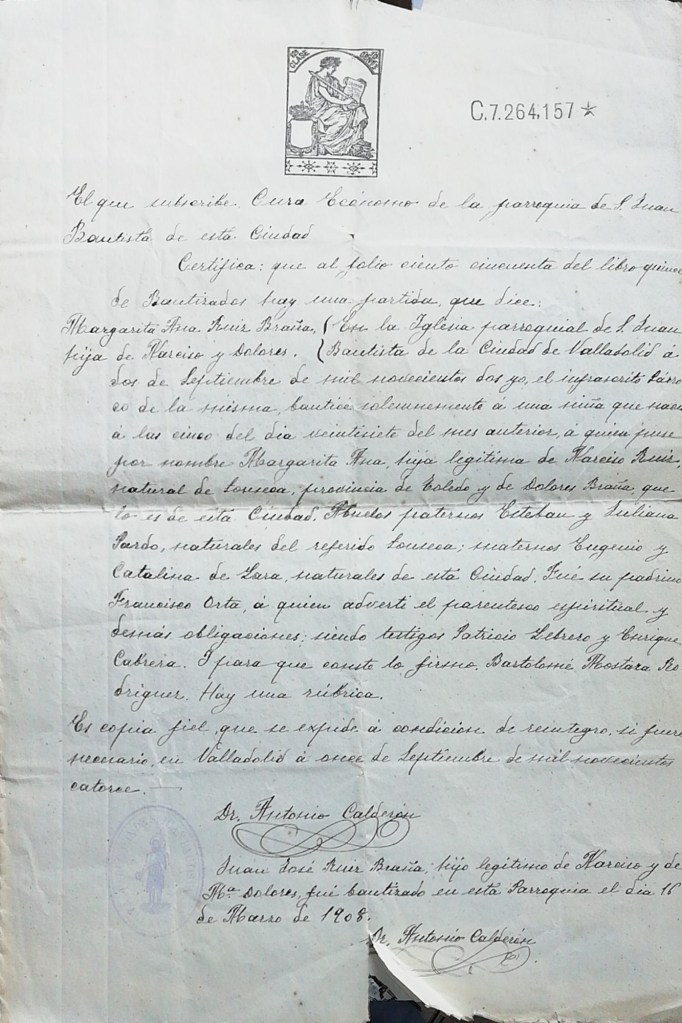 C.7.264,157
El que subscribe, Cura Ecónomo de la parroquia de S. Juan
Bautista de esta Ciudad
Certifica: que al folio ciento cincuenta del libro quince
de Bautizados hay una partida, que dice:
Margarita Ana Ruiz Braña, En la Iglesia parroquial de S. Juan
hija de Narciso y Dolores. Bautista de la Ciudad de Valladolid á
dos de Septiembre de mil novecientos dos yo, el infrascrito Párro
co de la misma, bauticé solemnemente á una niña que nació
á las cinco del dia veintisiete del mes anterior, á quien puse
por nombre Margarita Ana, hija legitima de Narciso Ruiz,
natural de provincia de Toledo y de Dolores Braña, que
lo es de esta Ciudad. Abuelos paternos Esteban y Juliana
Pardo, naturales del referido maternos Eugenio y
Catalina de Lara, naturales de esta Ciudad. Fué su padrino
Francisco Orta, á quien advertí el parentesco espiritual y
demás obligaciones; siendo testigos Patricio Lebrero y Enrique
Cabrera. I para que conste lo firmo. Bartolomé Ro
driguez. Hay una rúbrica.
Es copia fiel, que se expide á condición de reintegro, si fuere
necesario, en Valladolid á once de Septiembre de mil novecientos
catorce.
Dr. Antonio Calderón
Juan José Ruiz Braña, hijo legitimo de Narciso y de
Mª Dolores, fué bautizado en esta Parroquia el dia 16
de Marzo de 1908.
Dr. Antonio Calderón